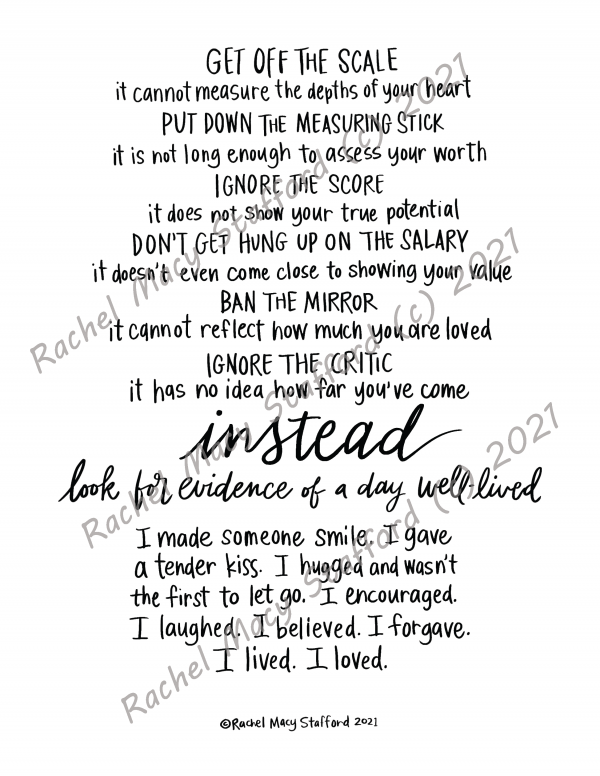 GET OFF THE SCALE
it cannot measure the depths of your heart
PUT DOWN THE MEASURING STICK
it is not long enough to assess your worth
IGNORE THE SCORE
it does not show your true potential
DON'T GET HUNG UP ON THE SALARY
it doesn't even come close to showing your value
BAN THE MIRROR
it cannot reflect how much you are loved
IGNORE THE CRITIC
it has no idea how far you've come
instead
look for evidence of a day well-lived
I made someone smile. I gave
a tender kiss. I hugged and wasn't
the first to let go. I encouraged.
I laughed. I believed. I forgave.
I lived. I loved.
©Rachel Macy Stafford 2021
Rachel Macy Stafford (c) 2021
Rachel Macy Stafford (c) 2021
Rachel Macy Stafford (c) 2021